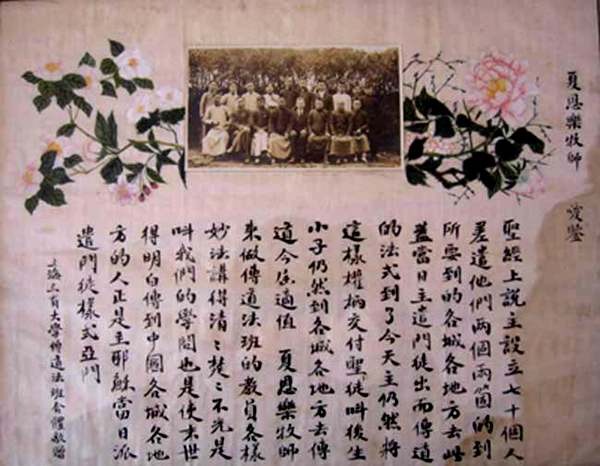 夏恩樂牧師 愛鑒
聖經上說主設立七十個人
差遣他們兩個兩箇的到
所要到的各城各地方去此
蓋當日主遣門徒出而傳道
的法式到了今天主仍然將
這樣權柄交付聖徒叫後生
小子仍然到各城各地方去傳
道今適值 夏恩樂牧師
來做傳道法班的教員各樣
妙法講得清〻楚〻不光是
叫我們的學問也是使末世
得明白傳到中國各城各地
方的人正是主耶穌當日派
遣門徒樣式亞門
上海三育大學傳道法班全體敬贈